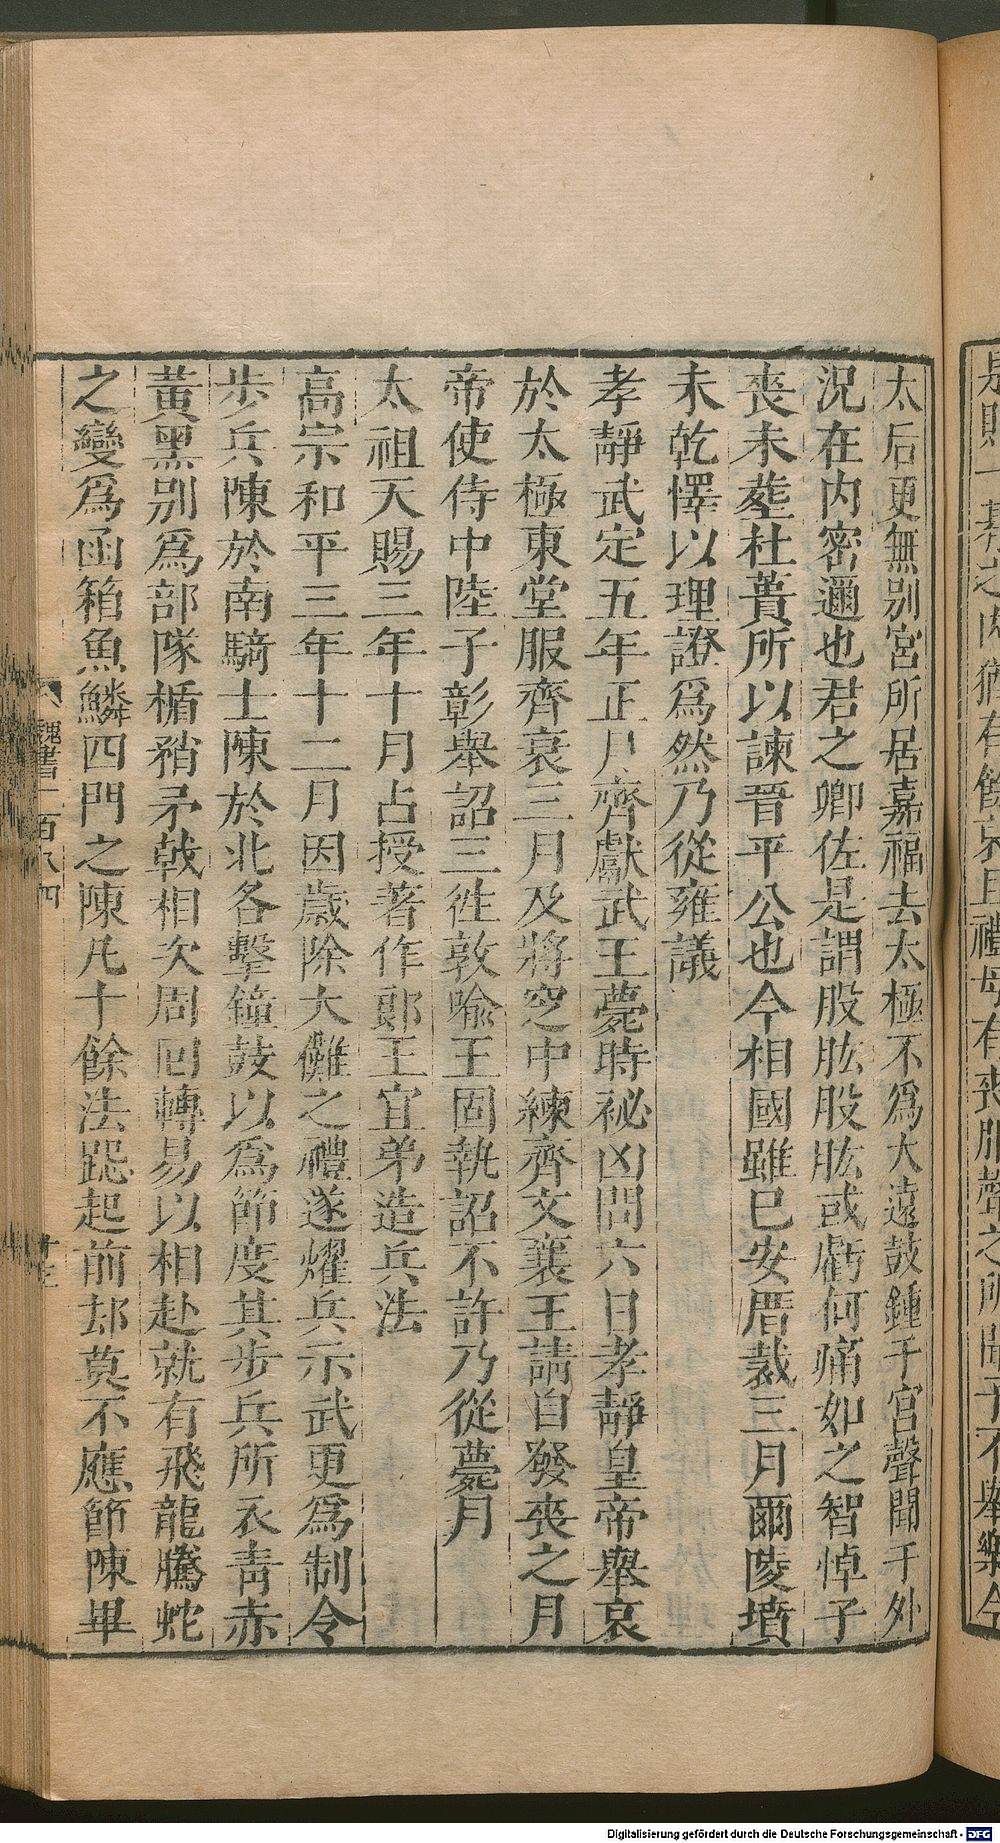 太后更無別宮所居嘉福去太極不爲大遠鼓鍾于宮聲聞于外
況在內密邇也君之卿佐是謂股肱股肱或虧何痛如之智悼子
喪未葬杜蕢所以諫晉平公也今相國雖已安厝裁三月爾陵墳
未乾懌以理證爲然乃從雍議
孝靜武定五年正月齊獻武王薨時祕凶問六日孝靜皇帝舉哀
於太極東堂服齊衰三月及將窆中練齊文襄王請自發喪之月
帝使侍中陸子彰舉詔三徃敦喩王固執詔不許乃從薨月
太祖天賜三年十月占授著作郞王宜弟造兵法
高宗和平三年十二月因歲除大儺之禮遂耀兵示武更爲制令
步兵陳於南騎士陳於北各擊鐘鼓以爲節度其步兵所衣靑赤
黃黑別爲部隊楯矟矛戟相次周回轉易以相赴就有飛龍騰蛇
之變爲函箱魚鱗四門之陳凢十餘法跽起前却莫不應節陳畢
魏書一百八四
十三
Digitalisierung gefördert durch die Deutsche Forschungsgemeinschaft - DFG